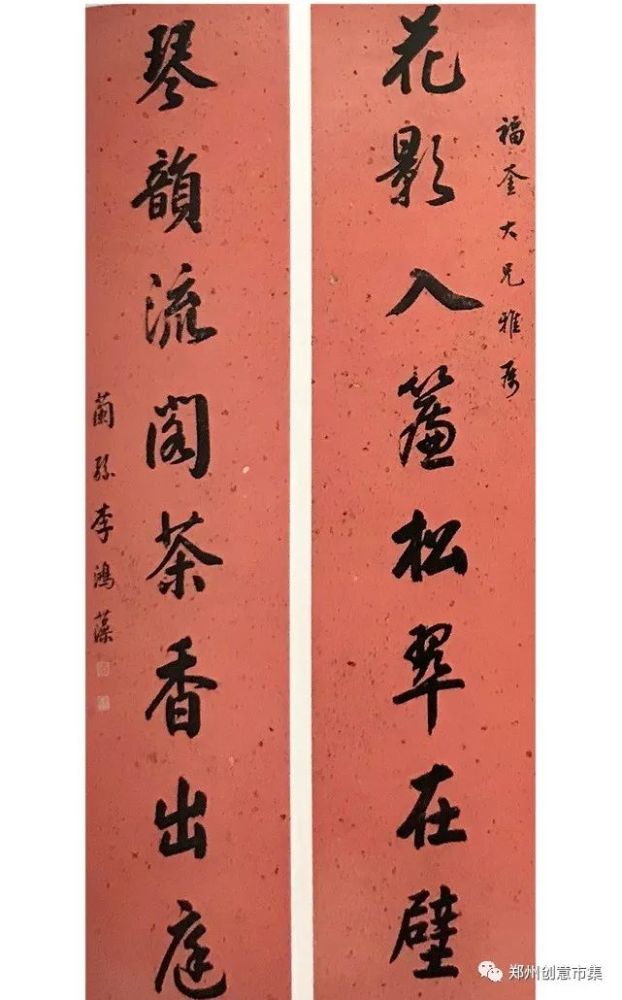 福奎大兄雅属
花影入簾松翠在壁
琴韻流閣茶香出庭
蘭孫李鴻藻
郑州创意市集